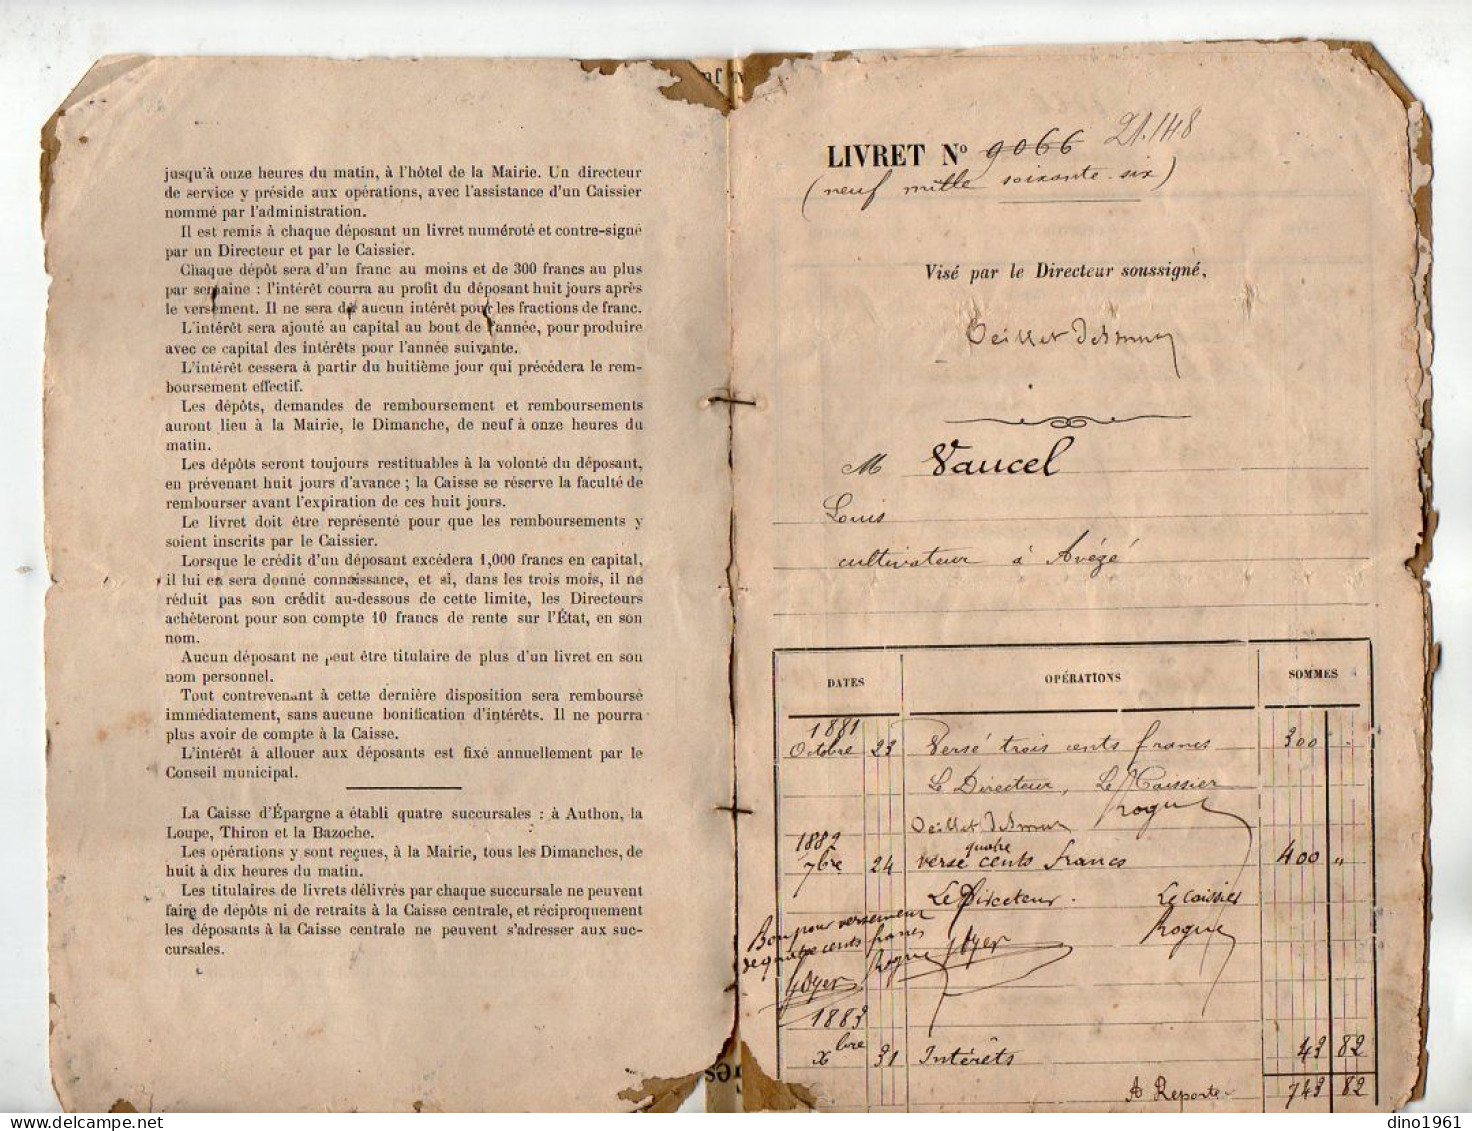 jusqu'à onze heures du matin, à l'hôtel de la Mairie. Un directeur
de service y préside aux opérations, avec l'assistance d'un Caissier
nommé par l'administration.
Il est remis à chaque déposant un livret numéroté et contre-signé
par un Directeur et par le Caissier.
Chaque dépôt sera d'un franc au moins et de 300 francs au plus
par semaine : l'intérêt courra au profit du déposant huit jours après
le versement. Il ne sera dû aucun intérêt pour les fractions de franc.
L'intérêt sera ajouté au capital au bout de l'année, pour produire
avec ce capital des intérêts pour l'année suivante.
L'intérêt cessera à partir du huitième jour qui précédera le rem-
boursement effectif.
Les dépôts, demandes de remboursement et remboursements
auront lieu à la Mairie, le Dimanche, de neuf à onze heures du
matin.
Les dépôts seront toujours restituables à la volonté du déposant,
en prévenant huit jours d'avance ; la Caisse se réserve la faculté de
rembourser avant l'expiration de ces huit jours.
Le livret doit être représenté pour que les remboursements y
soient inscrits par le Caissier.
Lorsque le crédit d'un déposant excédera 1,000 francs en capital,
il lui en sera donné connaissance, et si, dans les trois mois, il ne
réduit pas son crédit au-dessous de cette limite, les Directeurs
achèteront pour son compte 10 francs de rente sur l'État, en son
nom.
Aucun déposant ne peut être titulaire de plus d'un livret en son
nom personnel.
Tout contrevenant à cette dernière disposition sera remboursé
immédiatement, sans aucune bonification d'intérêts. Il ne pourra
plus avoir de compte à la Caisse.
L'intérêt à allouer aux déposants est fixé annuellement par le
Conseil municipal.
La Caisse d'Épargne a établi quatre succursales : à Authon, la
Loupe, Thiron et la Bazoche.
Les opérations y sont reçues, à la Mairie, tous les Dimanches, de
huit à dix heures du matin.
Les titulaires de livrets délivrés par chaque succursale ne peuvent
faire de dépôts ni de retraits à la Caisse centrale, et réciproquement
les déposants à la Caisse centrale ne peuvent s'adresser aux suc-
cursales.
LIVRET N° 9066 21.148
(neuf mille soixante-six)
Visé par le Directeur soussigné,
M Vaucel
Louis
cultivateur à Avézé
DATES OPÉRATIONS SOMMES
1881
Octobre 23 Versé trois cents francs 300
Le Directeur, Le Caissier
Rogue
1882
7bre 24 versé quatre cents francs 400 "
Le Directeur. Le caissier
Bon pour versement
de quatre cents francs
Rogue
Rogue
1883
xbre 31 Intérêts 43 82
A Reporter 743 82
dino1961